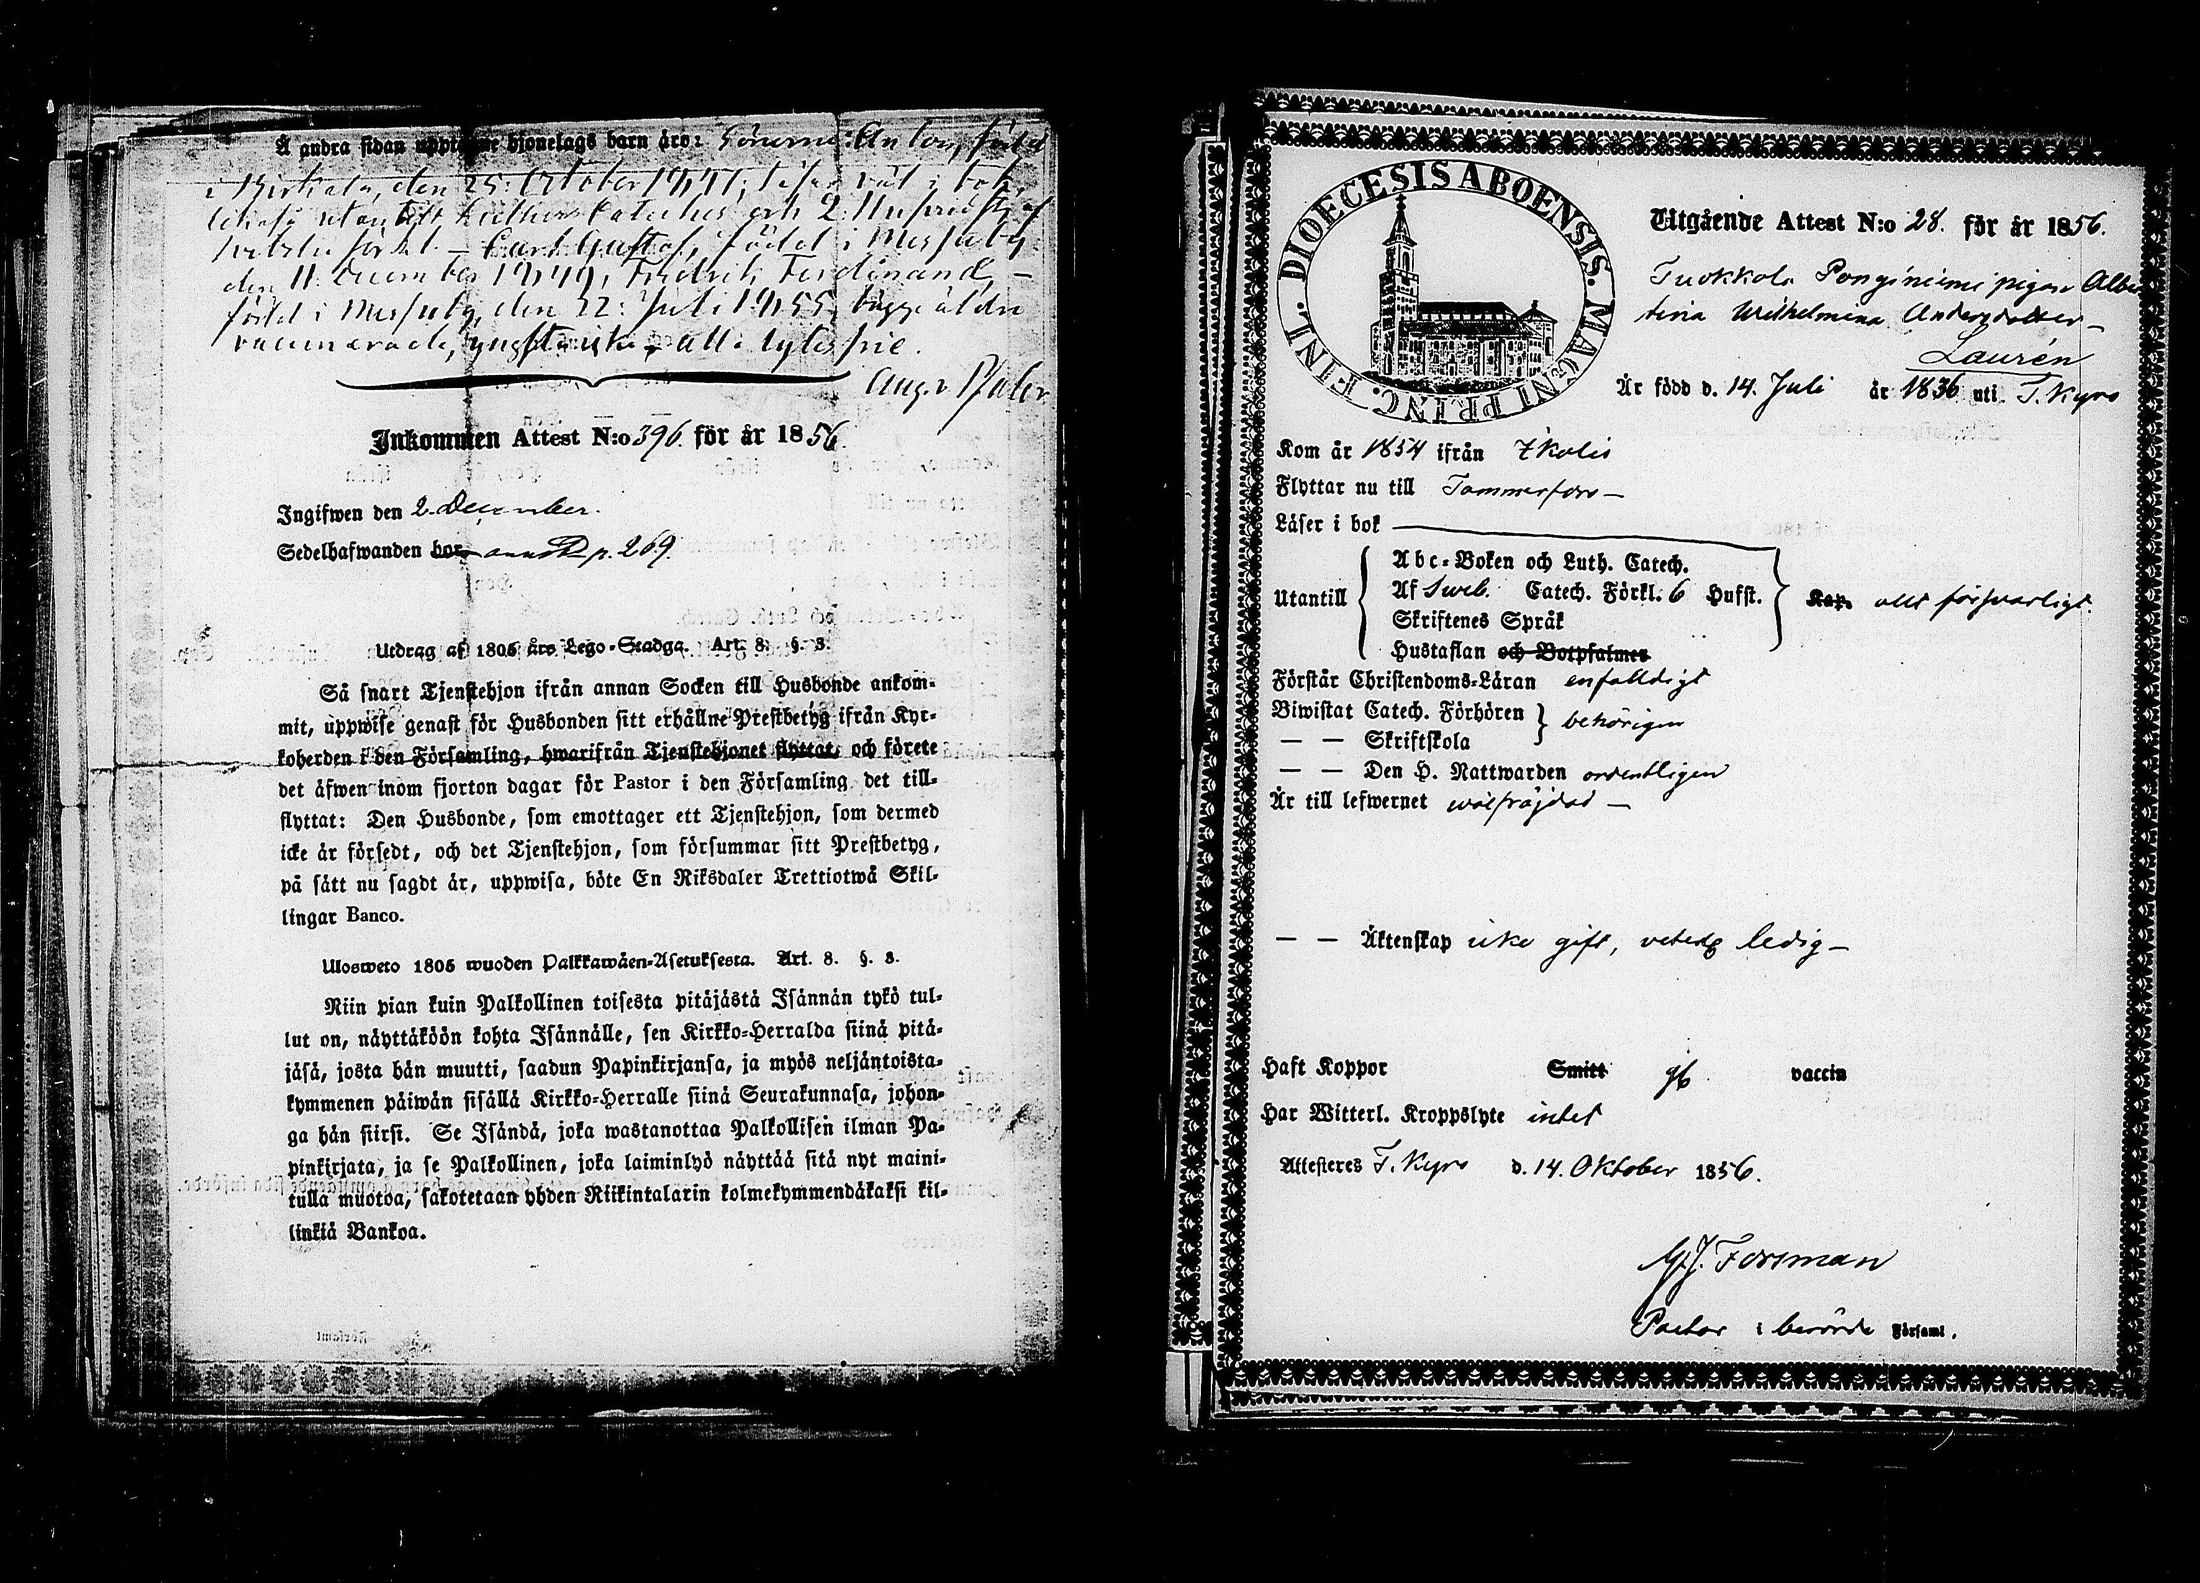 Å andra sidan upptagne hjonelags barn äro: Sönerne: Anton, född
i Birkala, den 25: Oktober 1841, läser väl i bok,
utantill Luthers Cateches och 2: Hufvudst. af
Svebelii förkl. – Carl Gustaf, född i Messuby
den 11 December 1849, Fredrik Ferdinand, –
född i Messuby, den 22: Juli 1855, bägge äldre
vaccinerade, yngste icke – alla lytesfrie.
Aug.
Inkommen Attest N:o 396. för år 1856
Ingifwen den 2. December.
Sedelhafwanden bor p. 269.
Utdrag af 1805 års Lego-Stadga. Art. 8. §. 3.
Så snart Tjenstehjon ifrån annan Socken till Husbonde ankom-
mit, uppwise genast för Husbonden sitt erhållne Prestbetyg ifrån Kyr-
koherden i den Församling, hwarifrån Tjenstehjonet flyttat, och förete
det äfwen inom fjorton dagar för Pastor i den Församling det till-
flyttat: Den Husbonde, som emottager ett Tjenstehjon, som dermed
icke är försedt, och det Tjenstehjon, som försummar sitt Prestbetyg,
på sätt nu sagdt är, uppwisa, böte En Riksdaler Trettiotwå Skil-
lingar Banco.
Ulosweto 1805 wuoden Palkkawäen-Asetuksesta. Art. 8. §. 3.
Niin pian kuin Palkollinen toisesta pitäjästä Isännän tykö tul-
lut on, näyttäköön kohta Isännälle, sen Kirkko-Herralda siinä pitä-
jäsä, josta hän muutti, saadun Papinkirjansa, ja myös neljäntoista-
kymmenen päiwän sisällä Kirkko-Herralle siinä Seurakunnasa, johon-
ga hän siirsi. Se Isändä, joka wastanottaa Palkollisen ilman Pa-
pinkirjata, ja se Palkollinen, joka laiminlyö näyttää sitä nyt maini-
tulla muotoa, sakotetaan yhden Riikintalarin kolmekymmendäkaksi kil-
linkiä Bankoa.
FINL. DIOECESIS ABOENSIS. MAGNI PRINC.
Utgående Attest N:o 28. för år 1856.
Tuokkola Ponginiemi pigan Alber
tina Wilhelmina Andersdotter –
Laurén
Är född d. 14. Juli år 1836 uti T. Kyro
Kom år 1854 ifrån Ikalis
Flyttar nu till Tammerfors –
Läser i bok
Abc-Boken och Luth. Catech.
Utantill Af Sweb. Catech. Förkl. 6 Hufst. Kap. allt försvarligt.
Skriftenes Språk
Hustaflan och Botpsalmer
Förstår Christendoms-Läran enfaldigt
Biwistat Catech. Förhören behörigen
— — Skriftskola
— — Den H. Nattwarden ordentligen
Är till lefwernet wälfräjdad –
— — Äktenskap icke gift, veterl. ledig –
Haft Koppor Smitt gb vaccin
Har Witterl. Kroppslyte intet
Attesteres T. Kyro d. 14. Oktober 1856.
G. J. Forsman
Pastor i berörde Församl.